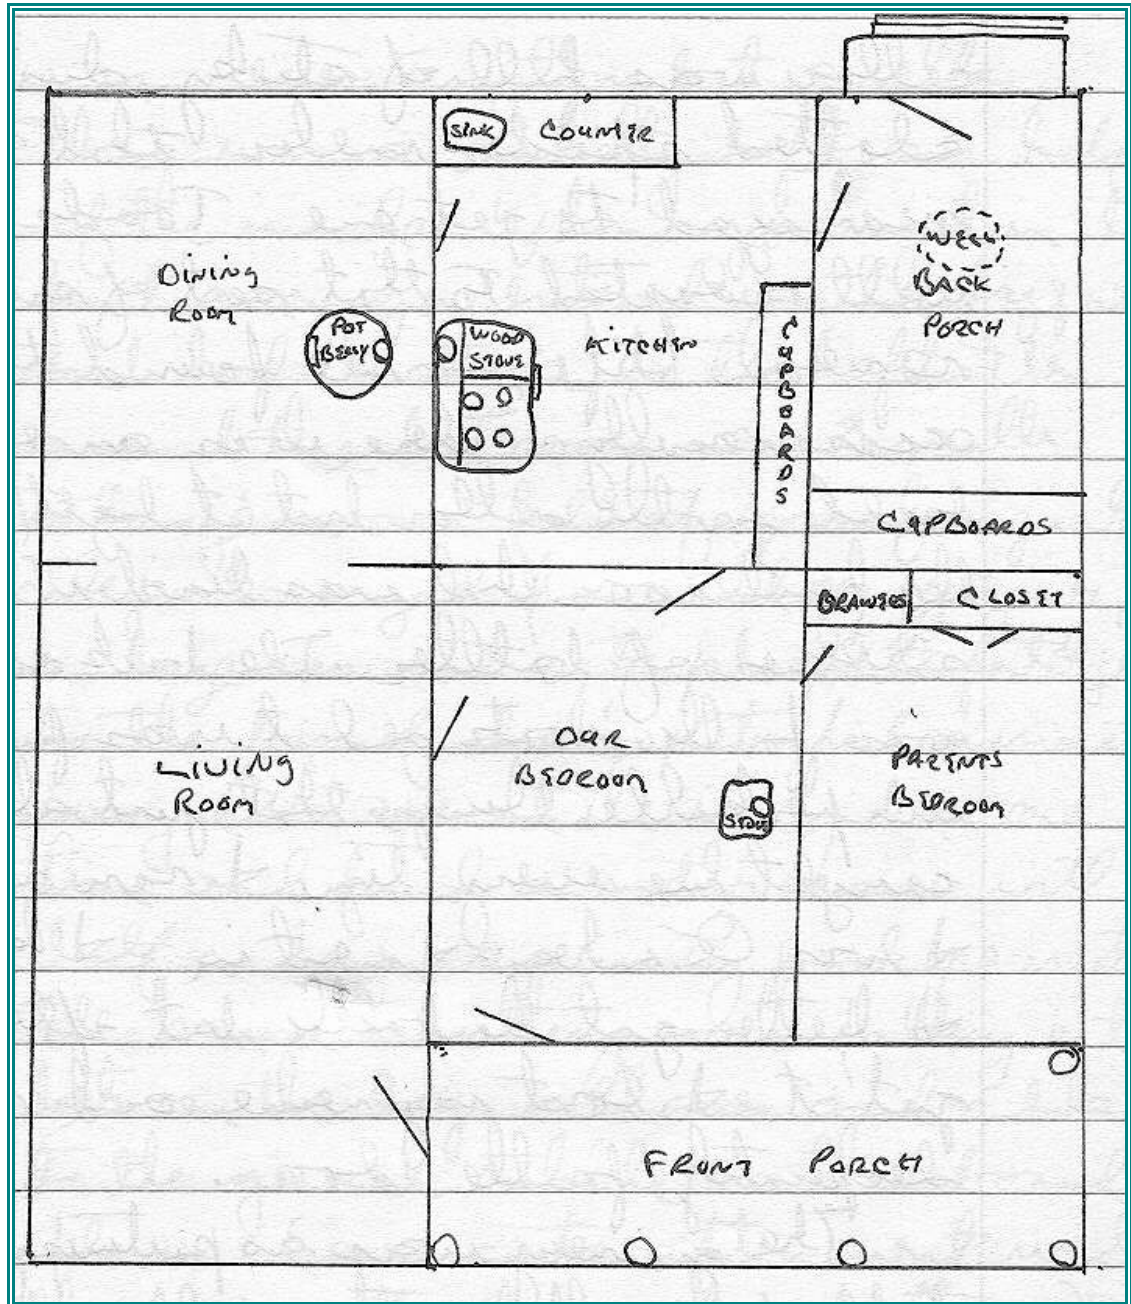 SINK COUNTER
DINING
ROOM
POT
BELLY
WOOD
STOVE
KITCHEN
CUPBOARDS
WELL
BACK
PORCH
CUPBOARDS
DRAWERS CLOSET
LIVING
ROOM
OUR
BEDROOM
STOVE
PARENTS
BEDROOM
FRONT PORCH